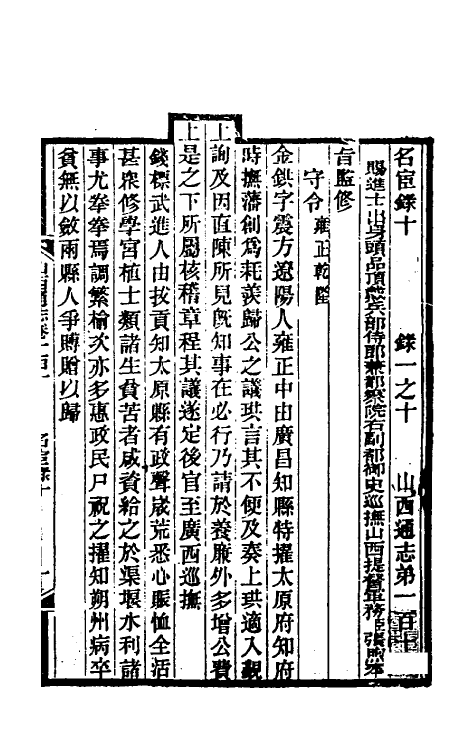 名宦錄十　錄一之十　山西通志第一百十
賜進士出身頭品頂戴兵部侍郎兼都察院右副都御史巡撫山西提督軍務臣張煦奉
旨監修
守令　雍正乾隆
金鉷字震方遼陽人雍正中由廣昌知縣特擢太原府知府
時撫藩創爲耗羨歸公之議珙言其不便及奏上珙適入覲
上詢及因直陳所見旣知事在必行乃請於養廉外多增公費
上是之下所屬核稽章程其議遂定後官至廣西巡撫
錢標武進人由拔貢知太原縣有政聲歲荒悉心賑恤全活
甚衆修學宮植士類諸生貧苦者咸資給之於渠堰水利諸
事尤拳拳焉調繁榆次亦多惠政民尸祝之擢知朔州病卒
貧無以斂兩縣人爭賻贈以歸